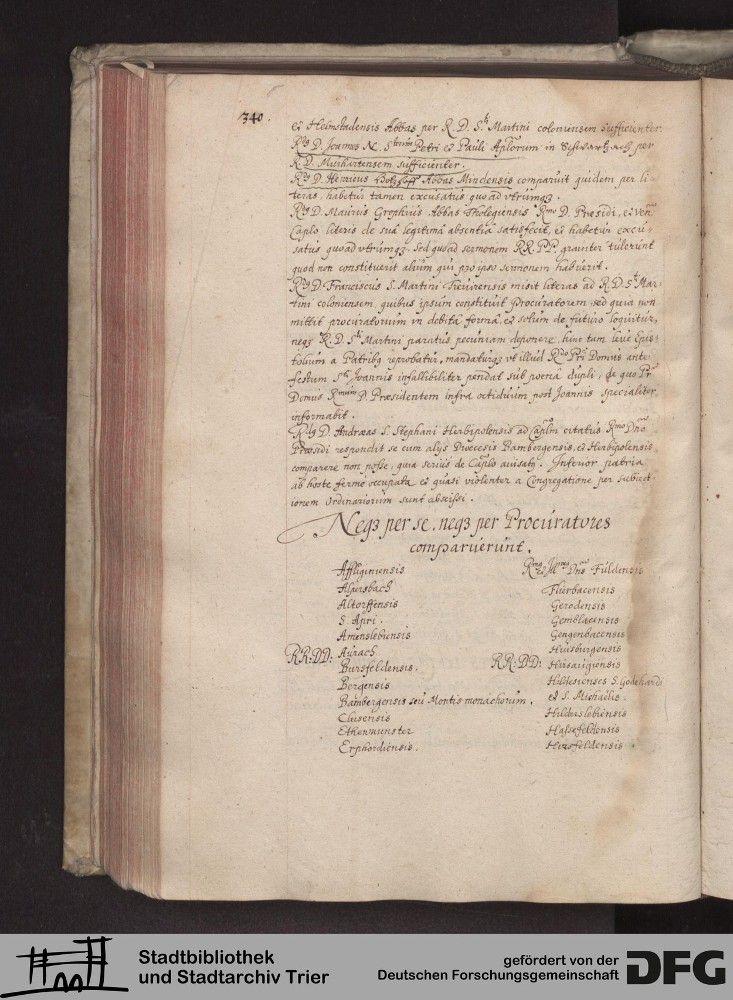 340.
et Helmstadensis Abbas per R. D. S.ti Martini coloniensem sufficienter.
R.dus D. Joannes N. S.torum Petri et Pauli Aplorum in Schwartzach per
R. D. Murhartensem sufficienter.
R.dus D. Henricus Abbas Mindensis comparuit quidem per li
teras, habetur tamen excusatus quoad utrumq3.
R.dus D. Mauritius Grophius Abbas Tholegiensis R.mo D. Præsidi, et Ven.
Caplo literis de sua legitima absentia satisfecit, et habetur excu,
satus quoad utrumq3. Sed quoad sermonem RR. PP. graviter tulerunt
quod non constituerit alium qui pro ipso sermonem habuerit.
R.dus D. Franciscus S. Martini Treverensis misit literas ad R. D. S.ti Mar,
tini coloniensem, quibus ipsum constituit Procuratorem sed quia non
mittit procuratorium in debita forma, et solum de futuro loquitur,
neq3 R. D. S.ti Martini paratus pecuniam deponere, hinc tam leve Epis,
tolium a Patribq reprobatur, mandaturq3 ut illud Domus ante
festum S.ti Joannis infallibiliter pendat sub poena dupli, de quo Pr
Domus R.mum D. Præsidentem infra octiduum post Joannis specialiter
informabit.
R.dus D. Andræas S. Stephani Herbipolensis ad Caplm citatus R.mo Dno
Præsidi respondit se cum alijs Diœcesis Bambergensis, et Herbipolensis
comparere non posse, quia serius de Caplo avisaty. Inferior patria
ab hoste ferme occupata et quasi violenter a Congregatione per subiect,
ionem Ordinariorum sunt abscissi.
Neq3 per se, neq3 per Procuratores
comparuerunt.
RR: DD:
Affliginiensis
Alpersbach
Altorffensis
S. Apri.
Amenslebiensis
Aurach
Bursfeldensis.
Bergensis
Bambergensis seu Montis monachorum.
Clusensis
Ethenmunster
Erphordiensis.
RR: DD:
Dns Fuldensis
Flurbacensis
Gerodensis
Gemblacensis
Gengenbacensis
Huisburgensis
Hirsaugiensis
Hildesienses S. Godehardi
et S. Michaelis.
Hilderslebiensis
Hassefeldensis
Hirsfeldensis.
Stadtbibliothek
und Stadtarchiv Trier
gefördert von der
Deutschen Forschungsgemeinschaft
DFG